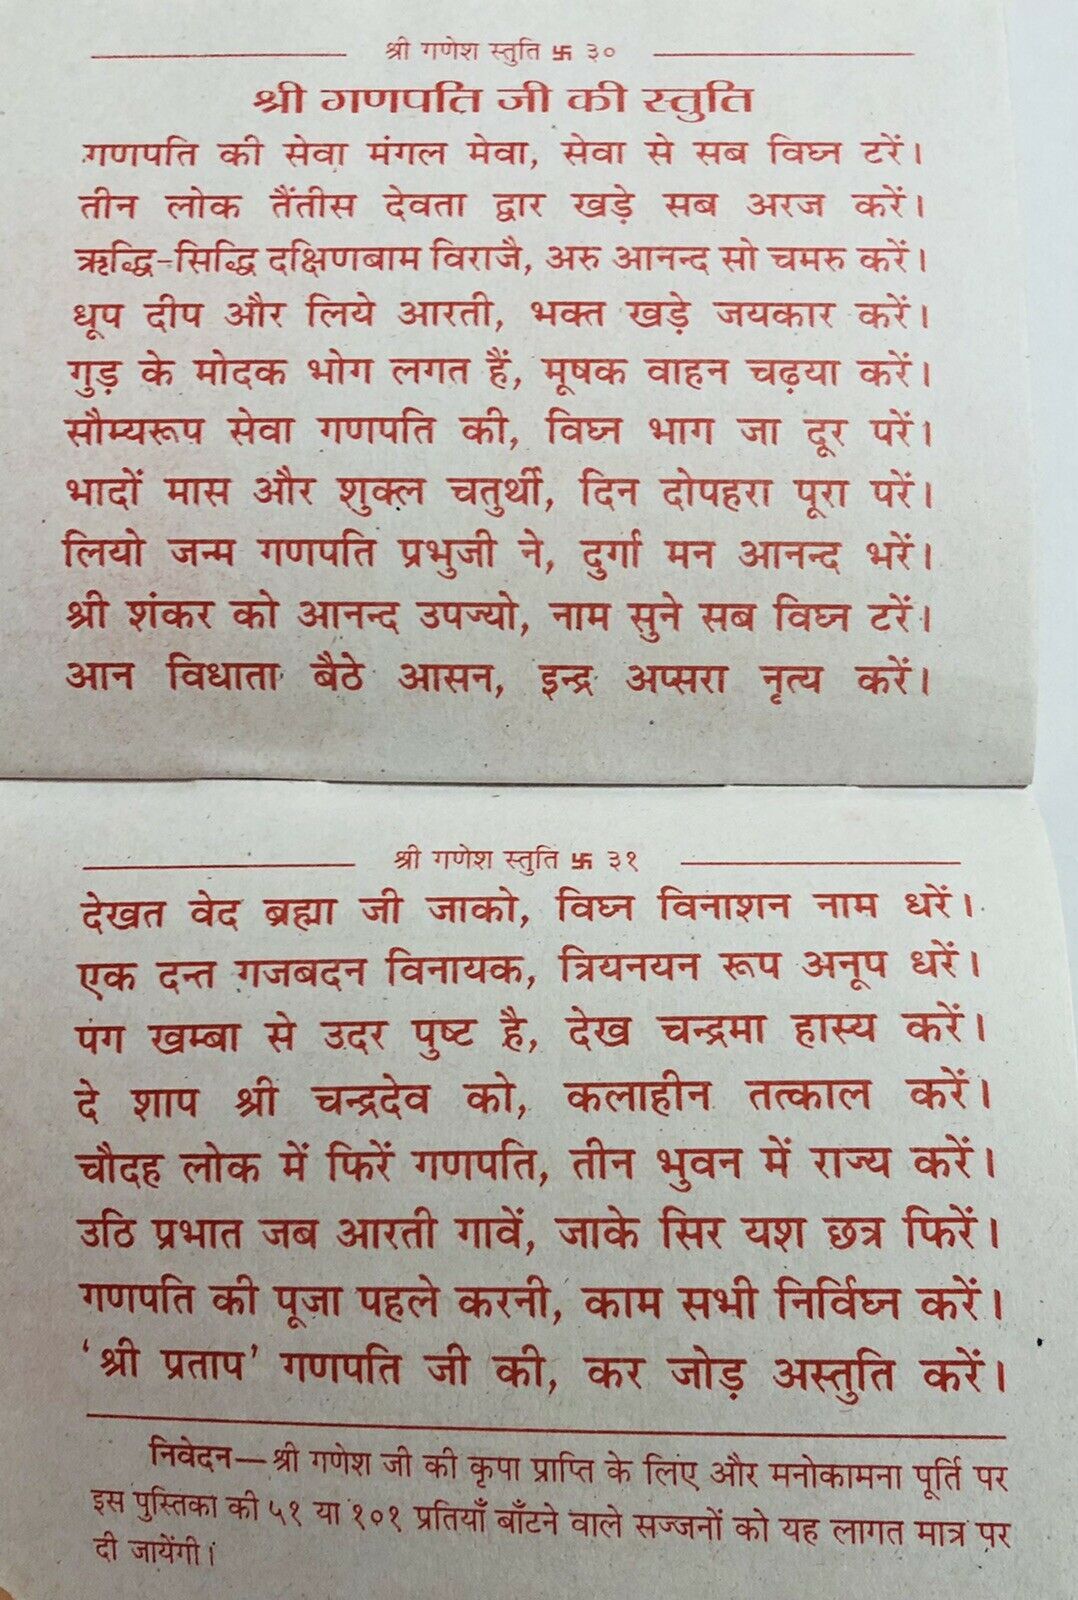 श्री गणेश स्तुति 卐 ३०
श्री गणपति जी की स्तुति
गणपति की सेवा मंगल मेवा, सेवा से सब विघ्न टरें।
तीन लोक तैंतीस देवता द्वार खड़े सब अरज करें।
ऋद्धि-सिद्धि दक्षिणबाम विराजै, अरु आनन्द सो चमरु करें।
धूप दीप और लिये आरती, भक्त खड़े जयकार करें।
गुड़ के मोदक भोग लगत हैं, मूषक वाहन चढ़या करें।
सौम्यरूप सेवा गणपति की, विघ्न भाग जा दूर परें।
भादों मास और शुक्ल चतुर्थी, दिन दोपहरा पूरा परें।
लियो जन्म गणपति प्रभुजी ने, दुर्गा मन आनन्द भरें।
श्री शंकर को आनन्द उपज्यो, नाम सुने सब विघ्न टरें।
आन विधाता बैठे आसन, इन्द्र अप्सरा नृत्य करें।
श्री गणेश स्तुति 卐 ३१
देखत वेद ब्रह्मा जी जाको, विघ्न विनाशन नाम धरें।
एक दन्त गजबदन विनायक, त्रियनयन रूप अनूप धरें।
पंग खम्बा से उदर पुष्ट है, देख चन्द्रमा हास्य करें।
दे शाप श्री चन्द्रदेव को, कलाहीन तत्काल करें।
चौदह लोक में फिरें गणपति, तीन भुवन में राज्य करें।
उठि प्रभात जब आरती गावें, जाके सिर यश छत्र फिरें।
गणपति की पूजा पहले करनी, काम सभी निर्विघ्न करें।
‘श्री प्रताप’ गणपति जी की, कर जोड़ अस्तुति करें।
निवेदन—श्री गणेश जी की कृपा प्राप्ति के लिए और मनोकामना पूर्ति पर
इस पुस्तिका की ५१ या १०१ प्रतियाँ बाँटने वाले सज्जनों को यह लागत मात्र पर
दी जायेंगी।